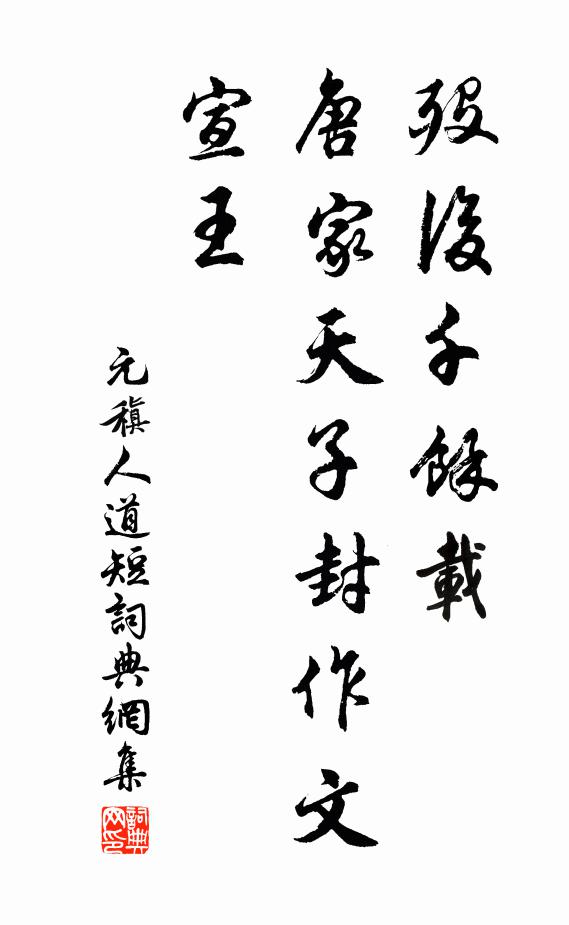 歿後千餘載
唐家天子封作文
宣王
元稹人道短詞典網集
詞典网印